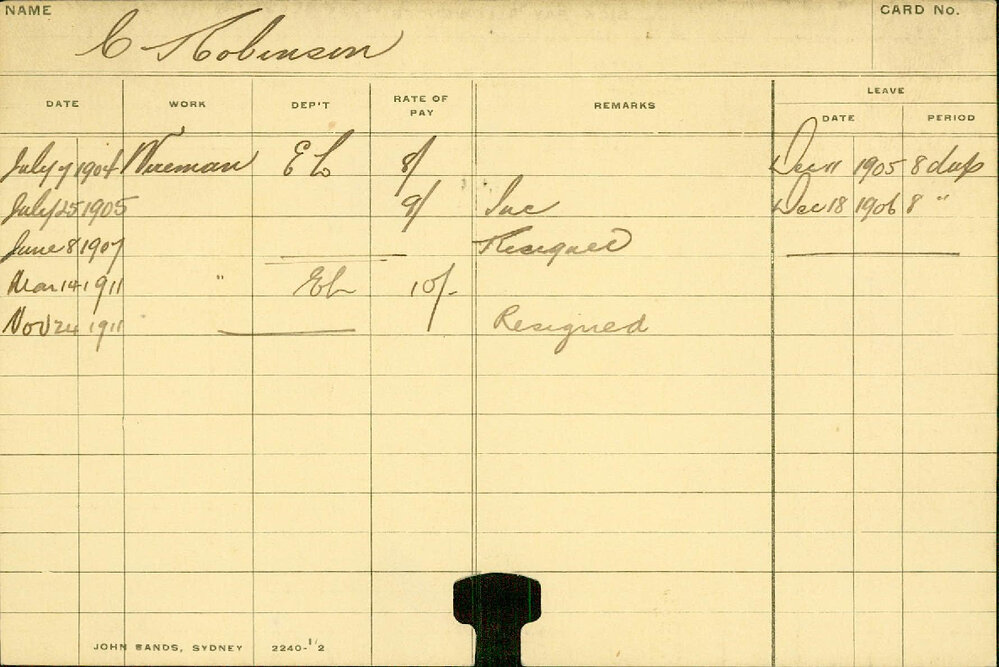 NAME CARD No.
C Robinson
DATE WORK DEP'T RATE OF PAY REMARKS LEAVE
DATE PERIOD
July 7 1904 Wireman EL 8/ Dec 11 1905 8 days
July 25 1905 9/ Inc Dec 18 1906 8 "
June 8 1907 Resigned
Mar 14 1911 " EL 10/-
Nov 24 1911 Resigned
JOHN SANDS, SYDNEY 2240-1/2